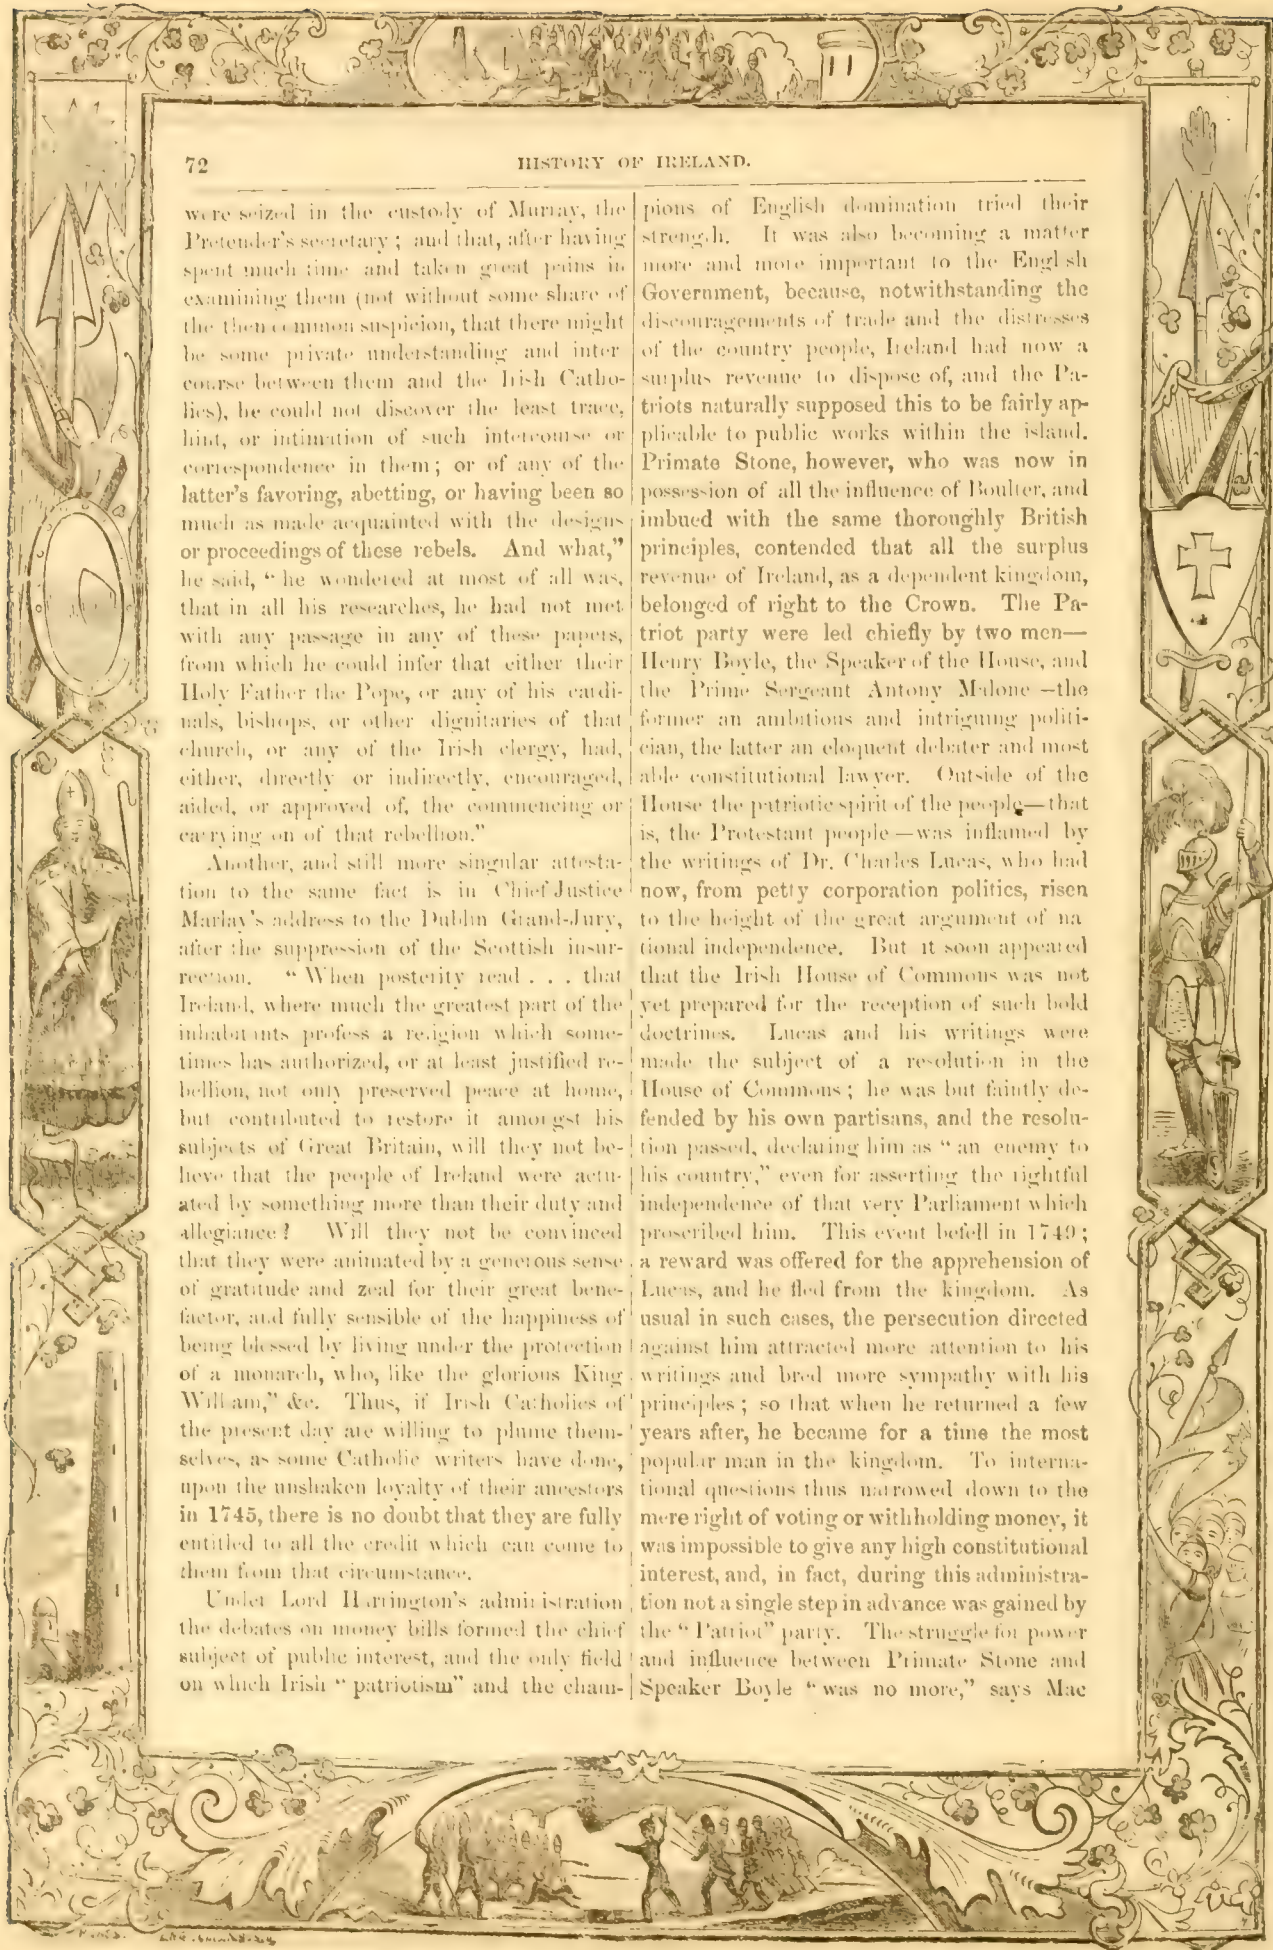 72
HISTORY OF IRELAND.
were seized in the custody of Murray, the
Pretender's secretary; and that, after having
spent much time and taken great pains in
examining them (not without some share of
the then common suspicion, that there might
be some private understanding and inter
course between them and the Irish Catho-
lics), he could not discover the least trace,
hint, or intimation of such intercourse or
correspondence in them; or of any of the
latter's favoring, abetting, or having been so
much as made acquainted with the designs
or proceedings of these rebels. And what,"
he said, "he wondered at most of all was,
that in all his researches, he had not met
with any passage in any of these papers,
from which he could infer that either their
Holy Father the Pope, or any of his cardi-
nals, bishops, or other dignitaries of that
church, or any of the Irish clergy, had,
either, directly or indirectly, encouraged,
aided, or approved of, the commencing or
carrying on of that rebellion."
Another, and still more singular attesta-
tion to the same fact is in Chief Justice
Marlay's address to the Dublin Grand-Jury,
after the suppression of the Scottish insur-
rection. "When posterity read . . . that
Ireland, where much the greatest part of the
inhabitants profess a religion which some-
times has authorized, or at least justified re-
bellion, not only preserved peace at home,
but contributed to restore it amongst his
subjects of Great Britain, will they not be-
lieve that the people of Ireland were actu-
ated by something more than their duty and
allegiance? Will they not be convinced
that they were animated by a generous sense
of gratitude and zeal for their great bene-
factor, and fully sensible of the happiness of
being blessed by living under the protection
of a monarch, who, like the glorious King
William," &c. Thus, if Irish Catholics of
the present day are willing to plume them-
selves, as some Catholic writers have done,
upon the unshaken loyalty of their ancestors
in 1745, there is no doubt that they are fully
entitled to all the credit which can come to
them from that circumstance.
Under Lord Harrington's administration
the debates on money bills formed the chief
subject of public interest, and the only field
on which Irish "patriotism" and the cham-
pions of English domination tried their
strength. It was also becoming a matter
more and more important to the English
Government, because, notwithstanding the
discouragements of trade and the distresses
of the country people, Ireland had now a
surplus revenue to dispose of, and the Pa-
triots naturally supposed this to be fairly ap-
plicable to public works within the island.
Primate Stone, however, who was now in
possession of all the influence of Boulter, and
imbued with the same thoroughly British
principles, contended that all the surplus
revenue of Ireland, as a dependent kingdom,
belonged of right to the Crown. The Pa-
triot party were led chiefly by two men—
Henry Boyle, the Speaker of the House, and
the Prime Sergeant Antony Malone—the
former an ambitious and intriguing politi-
cian, the latter an eloquent debater and most
able constitutional lawyer. Outside of the
House the patriotic spirit of the people—that
is, the Protestant people—was inflamed by
the writings of Dr. Charles Lucas, who had
now, from petty corporation politics, risen
to the height of the great argument of na
tional independence. But it soon appeared
that the Irish House of Commons was not
yet prepared for the reception of such bold
doctrines. Lucas and his writings were
made the subject of a resolution in the
House of Commons; he was but faintly de-
fended by his own partisans, and the resolu-
tion passed, declaring him as "an enemy to
his country," even for asserting the rightful
independence of that very Parliament which
proscribed him. This event befell in 1749;
a reward was offered for the apprehension of
Lucas, and he fled from the kingdom. As
usual in such cases, the persecution directed
against him attracted more attention to his
writings and bred more sympathy with his
principles; so that when he returned a few
years after, he became for a time the most
popular man in the kingdom. To interna-
tional questions thus narrowed down to the
mere right of voting or withholding money, it
was impossible to give any high constitutional
interest, and, in fact, during this administra-
tion not a single step in advance was gained by
the "Patriot" party. The struggle for power
and influence between Primate Stone and
Speaker Boyle "was no more," says Mac